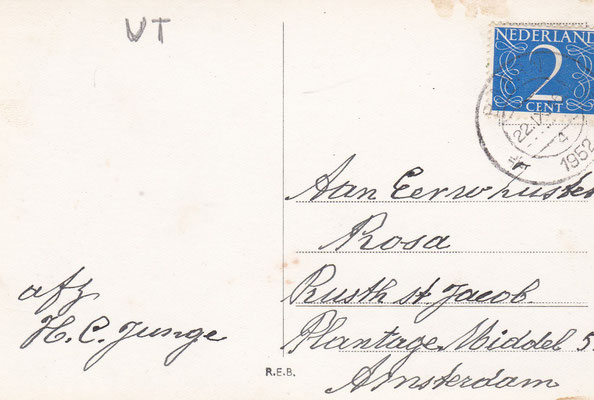 VT
NEDERLAND
2
CENT
1952
Aan Eerw huster
Rosa
Rusth st. Jacob
Plantage Middel 5
Amsterdam
afz
H. C. Junge
R.E.B.